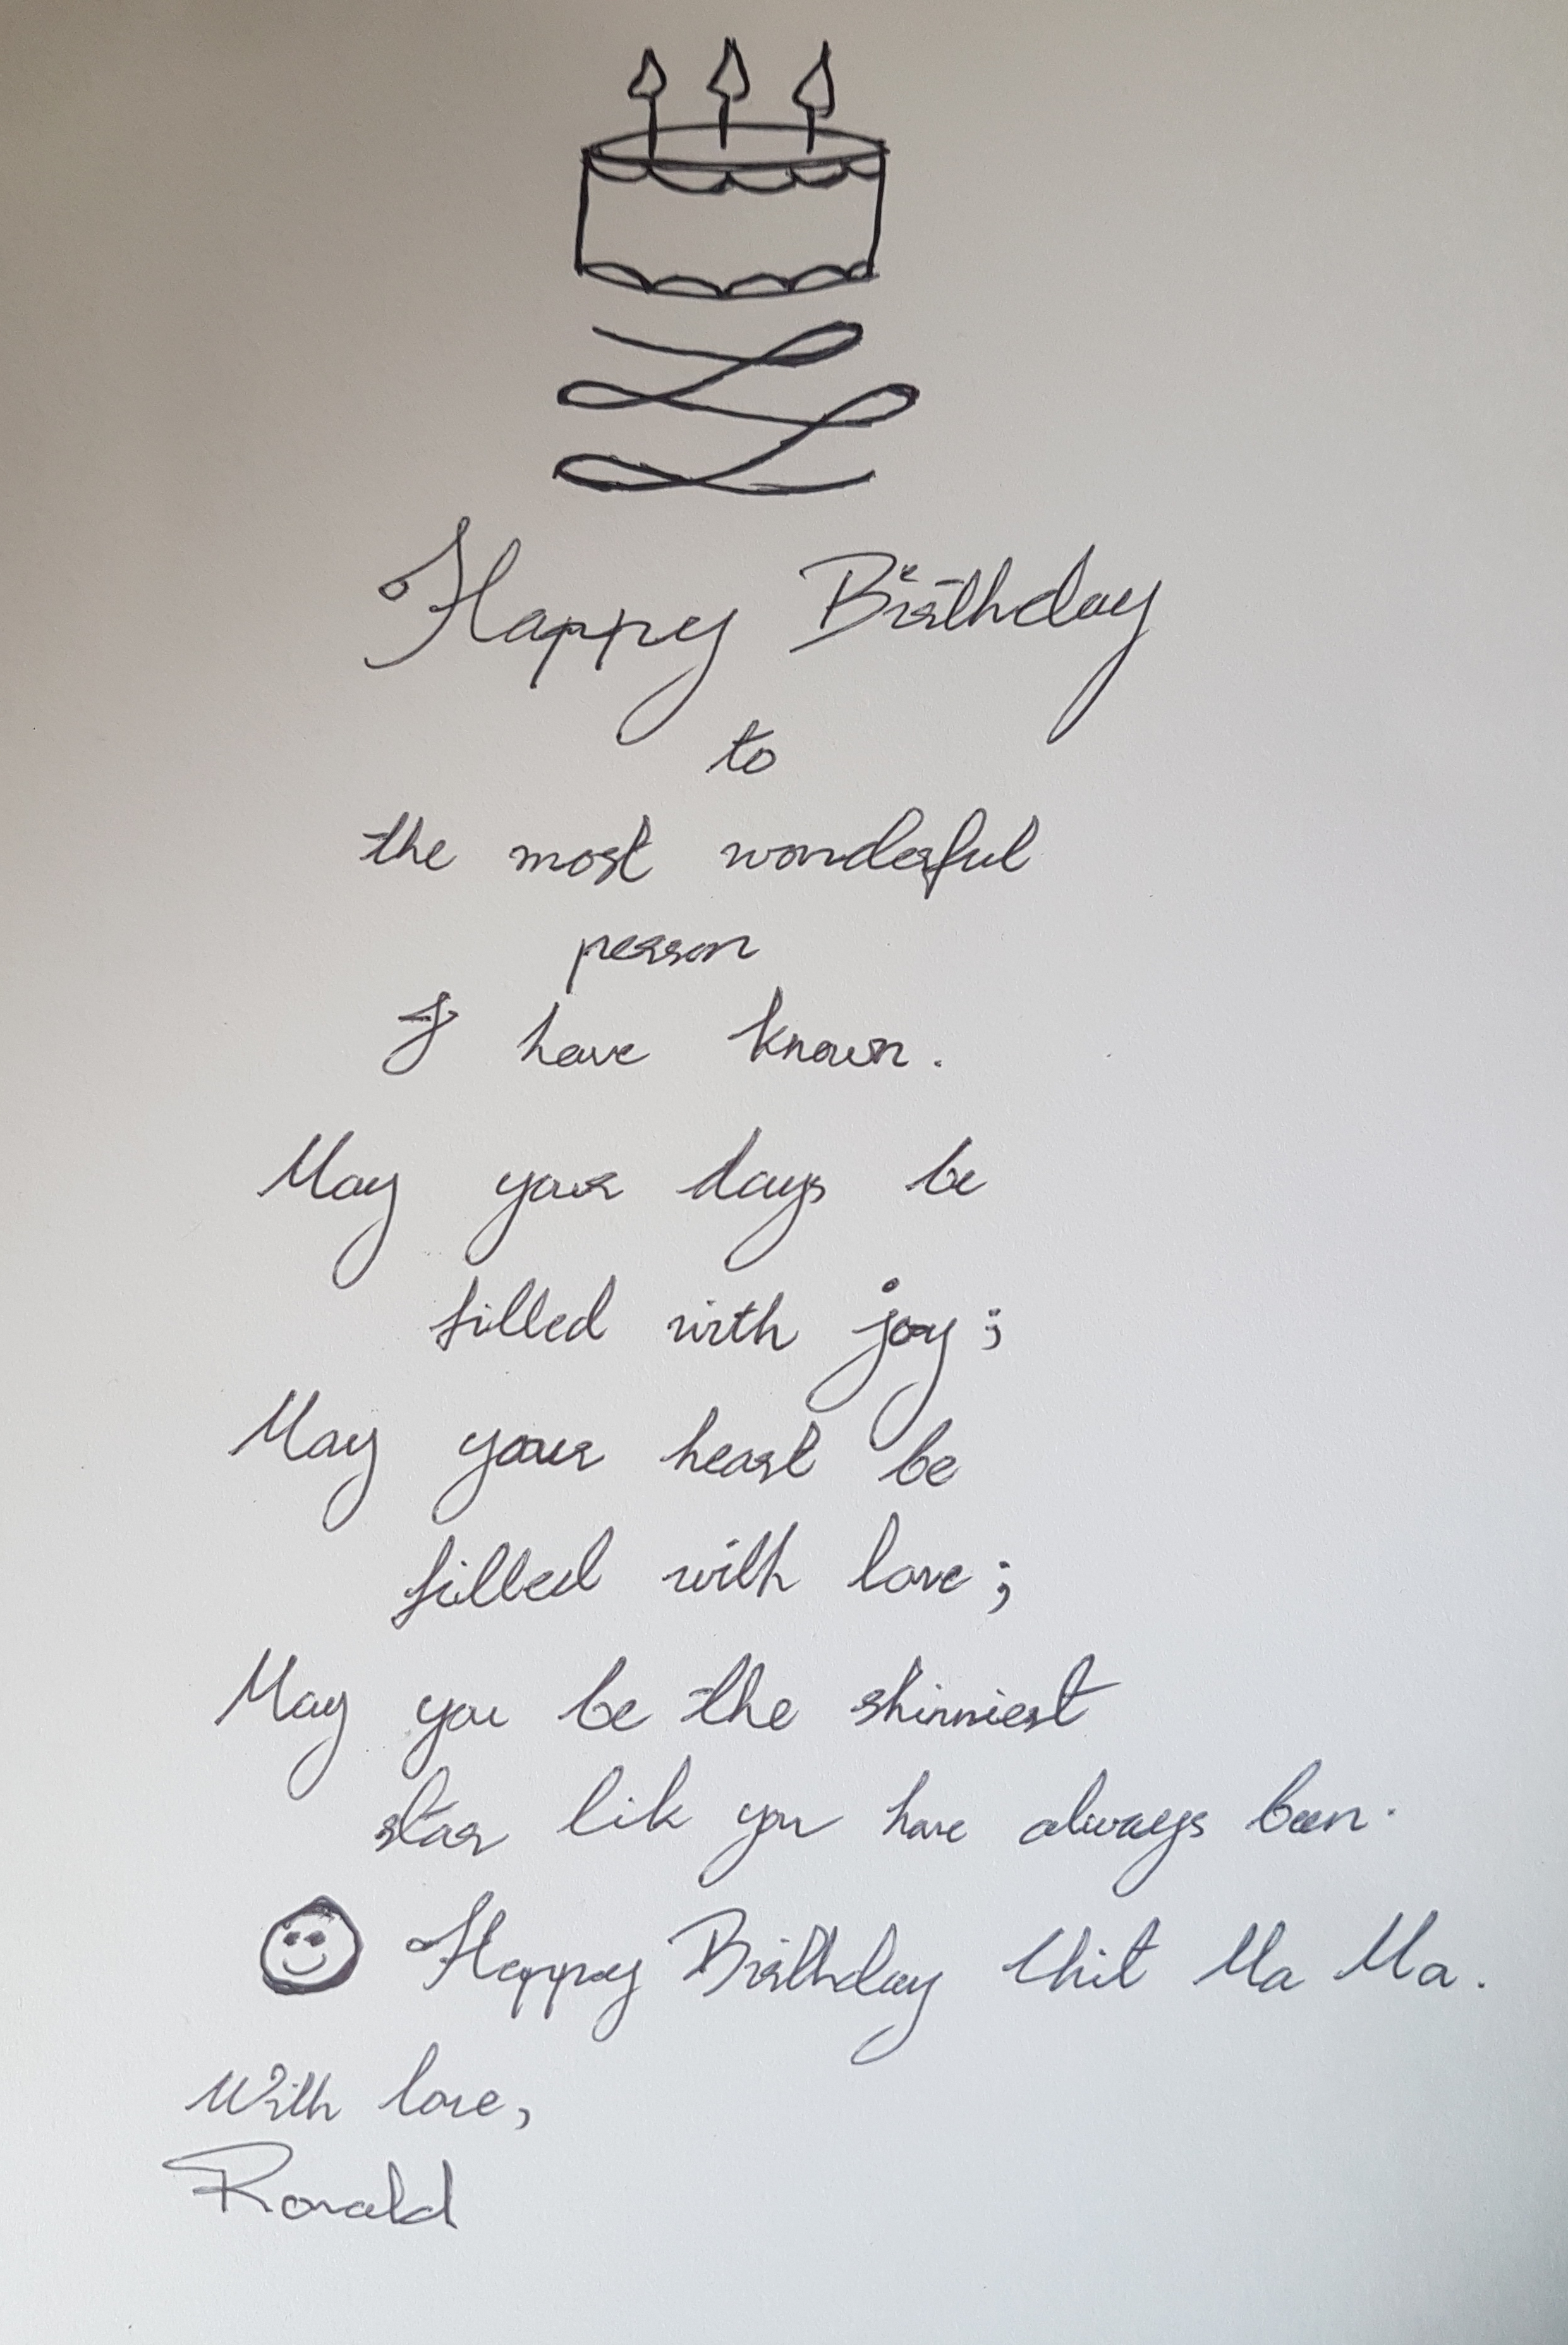 Happy Birthday
to
the most wonderful
person
I have known.
May your days be
filled with joy;
May your heart be
filled with love;
May you be the shinniest
star lik you have always been.
Happy Birthday thit Ma Ma.
With love,
Ronald